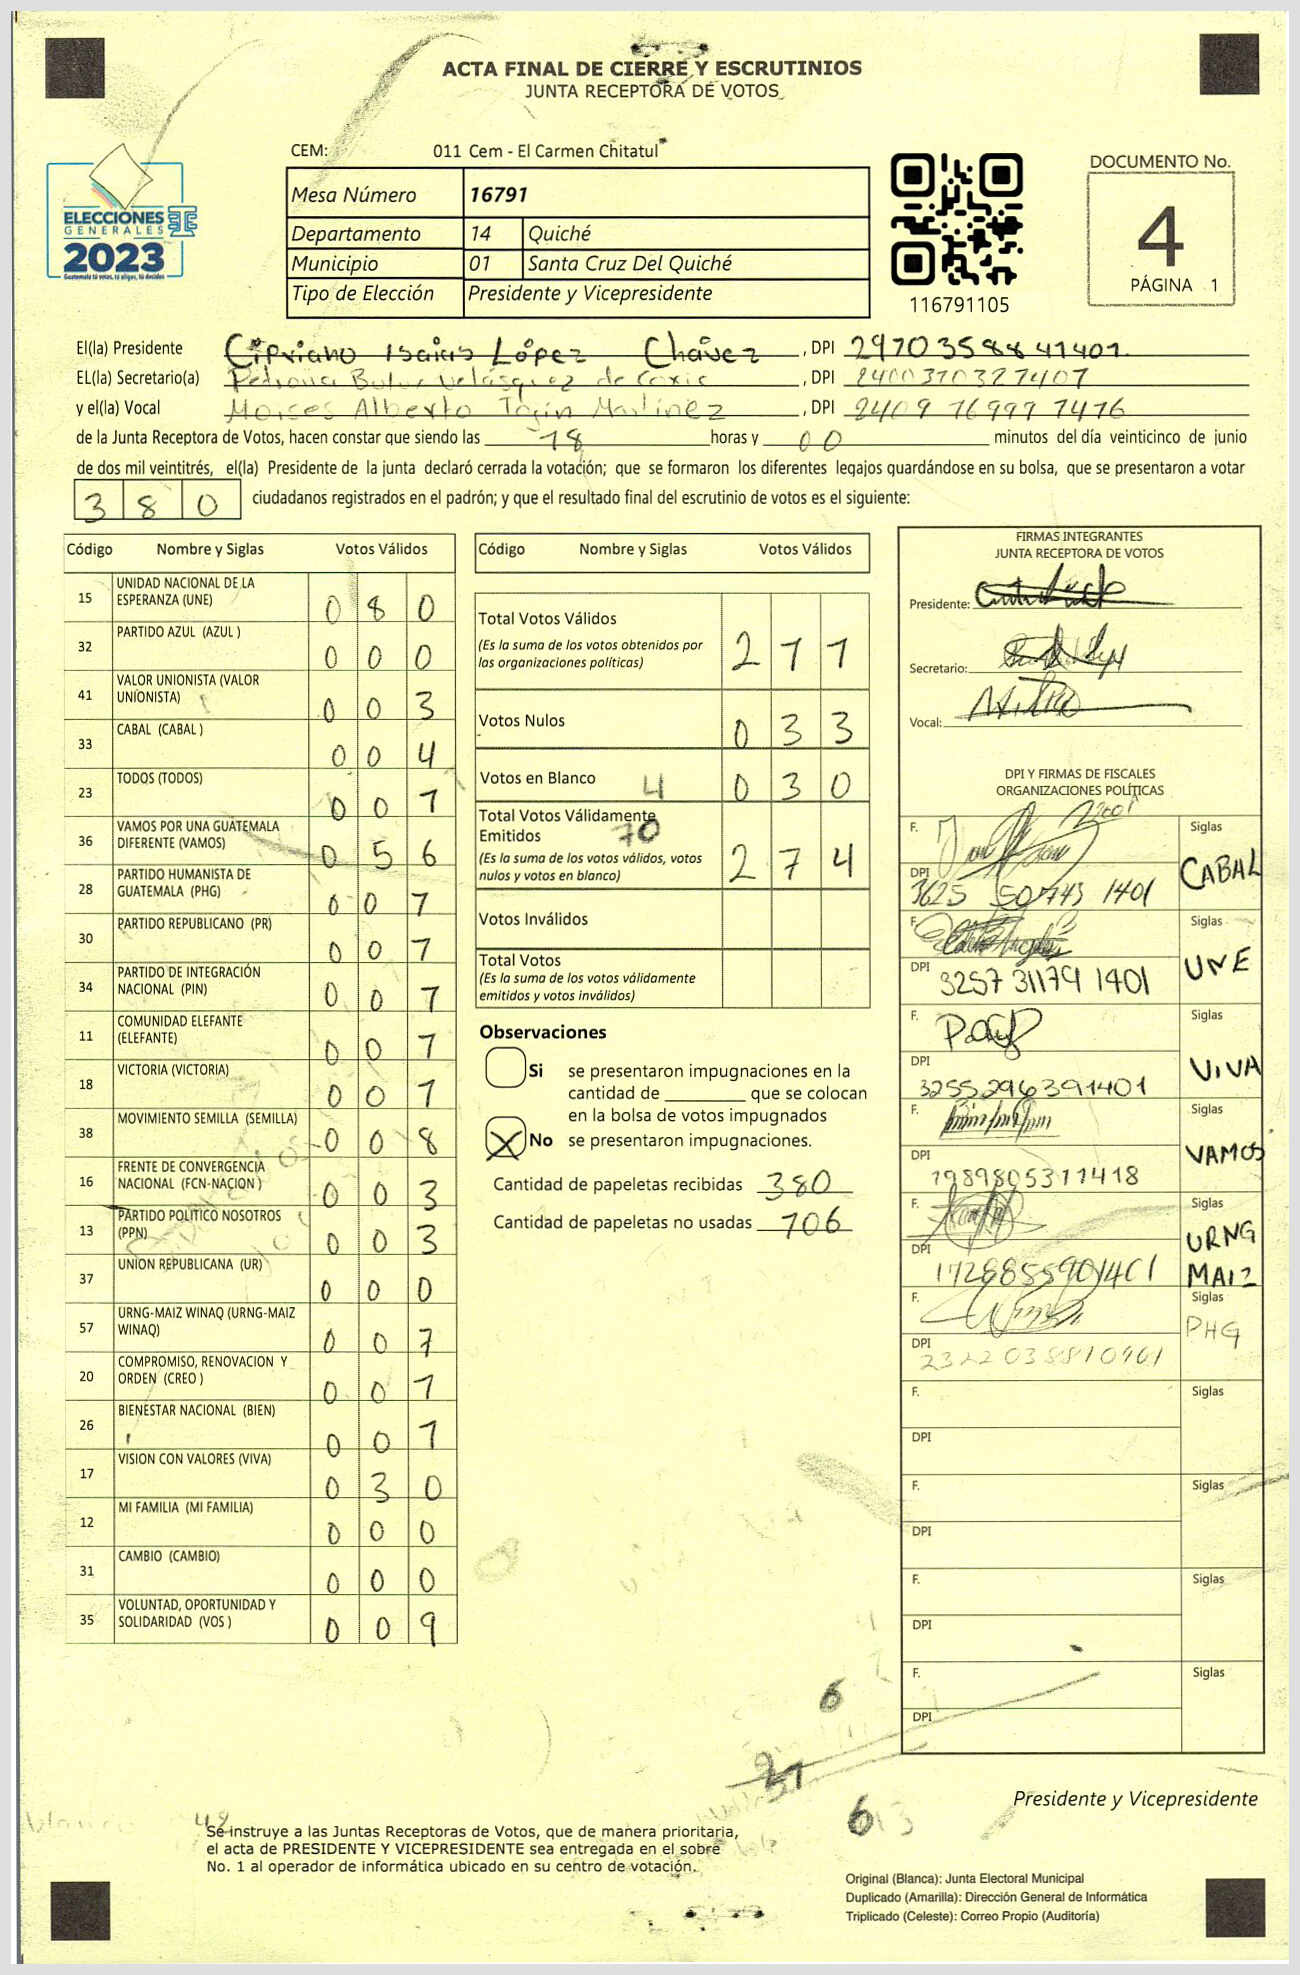 ACTA FINAL DE CIERRE Y ESCRUTINIOS
JUNTA RECEPTORA DE VOTOS
CEM: 011 Cem - El Carmen Chitatul
Mesa Número 16791
Departamento 14 Quiché
Municipio 01 Santa Cruz Del Quiché
Tipo de Elección Presidente y Vicepresidente
ELECCIONES
GENERALES
2023
Guatemala tú votas, tú eliges, tú decides
116791105
DOCUMENTO No.
4
PÁGINA 1
El(la) Presidente Cipriano Isaias López Chávez, DPI 2970358841401
EL(la) Secretario(a) Velásquez de, DPI 2400370327407
y el(la) Vocal Moises Alberto Martínez, DPI 2409 76997 7476
de la Junta Receptora de Votos, hacen constar que siendo las 18 horas y 00 minutos del día veinticinco de junio
de dos mil veintitrés, el(la) Presidente de la junta declaró cerrada la votación; que se formaron los diferentes legajos quardándose en su bolsa, que se presentaron a votar
380 ciudadanos registrados en el padrón; y que el resultado final del escrutinio de votos es el siguiente:
Código Nombre y Siglas Votos Válidos
15 UNIDAD NACIONAL DE LA ESPERANZA (UNE) 0 8 0
32 PARTIDO AZUL (AZUL ) 0 0 0
41 VALOR UNIONISTA (VALOR UNIONISTA) 0 0 3
33 CABAL (CABAL ) 0 0 4
23 TODOS (TODOS) 0 0 1
36 VAMOS POR UNA GUATEMALA DIFERENTE (VAMOS) 0 5 6
28 PARTIDO HUMANISTA DE GUATEMALA (PHG) 0 0 7
30 PARTIDO REPUBLICANO (PR) 0 0 7
34 PARTIDO DE INTEGRACIÓN NACIONAL (PIN) 0 0 7
11 COMUNIDAD ELEFANTE (ELEFANTE) 0 0 7
18 VICTORIA (VICTORIA) 0 0 1
38 MOVIMIENTO SEMILLA (SEMILLA) 0 0 8
16 FRENTE DE CONVERGENCIA NACIONAL (FCN-NACION ) 0 0 3
13 PARTIDO POLITICO NOSOTROS (PPN) 0 0 3
37 UNION REPUBLICANA (UR) 0 0 0
57 URNG-MAIZ WINAQ (URNG-MAIZ WINAQ) 0 0 7
20 COMPROMISO, RENOVACION Y ORDEN (CREO ) 0 0 1
26 BIENESTAR NACIONAL (BIEN) 0 0 1
17 VISION CON VALORES (VIVA) 0 3 0
12 MI FAMILIA (MI FAMILIA) 0 0 0
31 CAMBIO (CAMBIO) 0 0 0
35 VOLUNTAD, OPORTUNIDAD Y SOLIDARIDAD (VOS ) 0 0 9
Código Nombre y Siglas Votos Válidos
Total Votos Válidos 2 1 1
(Es la suma de los votos obtenidos por
las organizaciones políticas)
Votos Nulos 0 3 3
Votos en Blanco 4 0 3 0
Total Votos Válidamente
Emitidos 70 2 7 4
(Es la suma de los votos válidos, votos
nulos y votos en blanco)
Votos Inválidos
Total Votos
(Es la suma de los votos válidamente
emitidos y votos inválidos)
Observaciones
Si se presentaron impugnaciones en la
cantidad de ________ que se colocan
en la bolsa de votos impugnados
X No se presentaron impugnaciones.
Cantidad de papeletas recibidas 380
Cantidad de papeletas no usadas 106
FIRMAS INTEGRANTES
JUNTA RECEPTORA DE VOTOS
Presidente:
Secretario:
Vocal:
DPI Y FIRMAS DE FISCALES
ORGANIZACIONES POLÍTICAS
F. Siglas CABAL
DPI 3625 50743 1401
F. Siglas UNE
DPI 3257 31179 1401
F. Siglas VIVA
DPI 3255296391401
F. Siglas VAMOS
DPI 1989805311418
F. Siglas URNG MAIZ
DPI 1728855901401
F. Siglas PHG
DPI 2322038810901
F. Siglas
DPI
F. Siglas
DPI
F. Siglas
DPI
F. Siglas
DPI
6
21
Presidente y Vicepresidente
613
49
Se instruye a las Juntas Receptoras de Votos, que de manera prioritaria,
el acta de PRESIDENTE Y VICEPRESIDENTE sea entregada en el sobre
No. 1 al operador de informática ubicado en su centro de votación.
Original (Blanca): Junta Electoral Municipal
Duplicado (Amarilla): Dirección General de Informática
Triplicado (Celeste): Correo Propio (Auditoría)